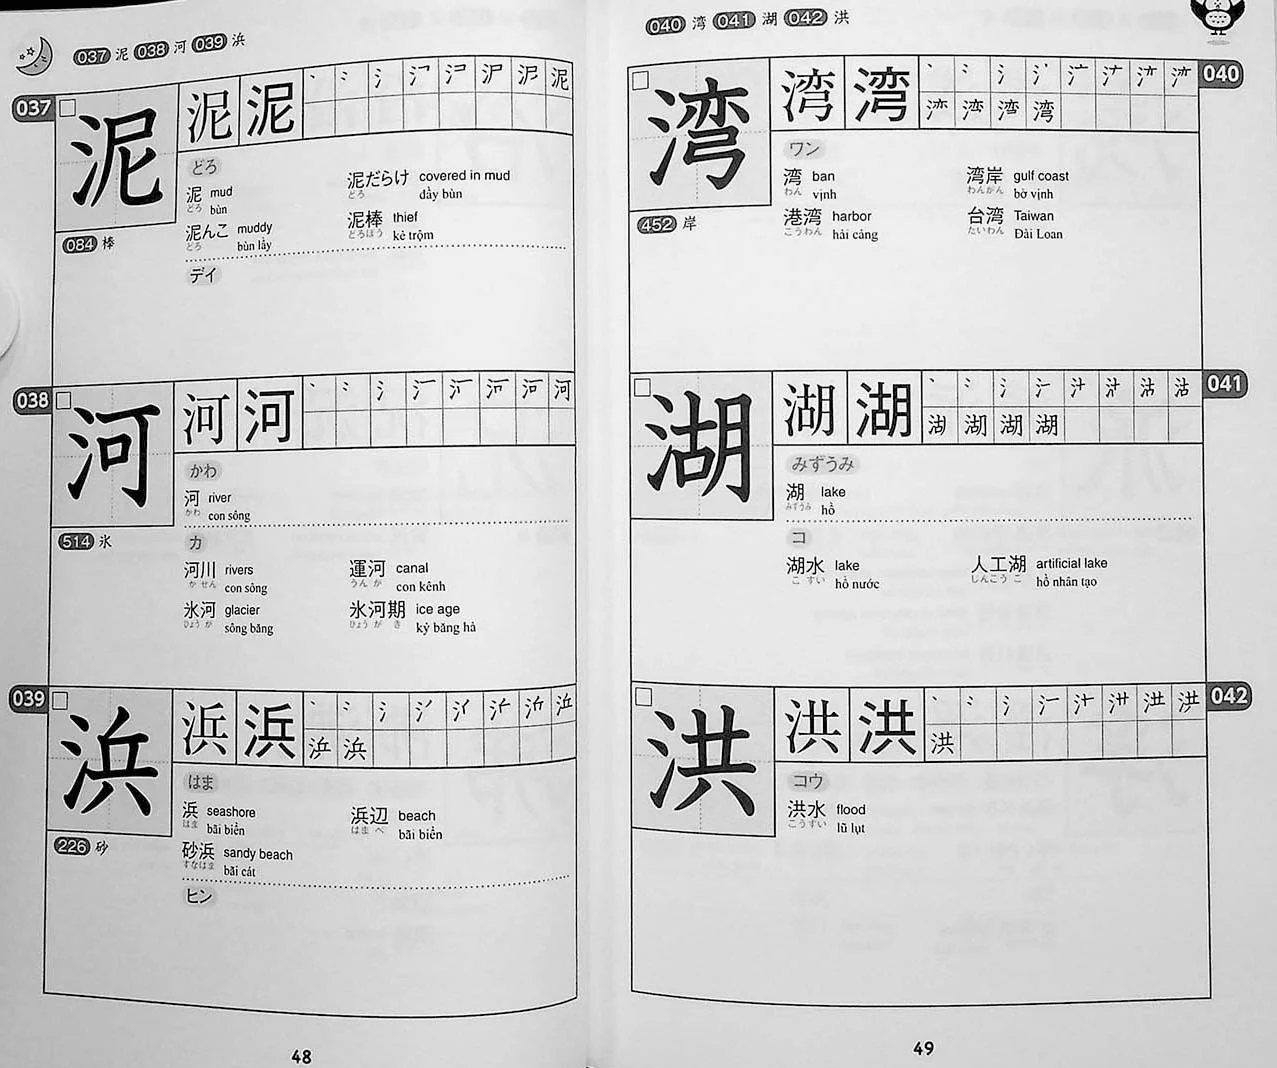 037 泥 038 河 039 浜
037
泥 泥 泥 丶 氵 泥
どろ
泥 mud 泥だらけ covered in mud
どろ bùn どろ đầy bùn
泥んこ muddy 泥棒 thief
どろ bùn lầy どろぼう kẻ trộm
084 棒
デイ
038
河 河 河 丶 氵 河
かわ
河 river
かわ con sông
514 氷
カ
河川 rivers 運河 canal
か せん con sông うん が con kênh
氷河 glacier 氷河期 ice age
ひょう が sông băng ひょう が き kỷ băng hà
039
浜 浜 浜 丶 氵 浜
浜 浜
はま
浜 seashore 浜辺 beach
はま bãi biển はま べ bãi biển
226 砂
砂浜 sandy beach
すなはま bãi cát
ヒン
48
040 湾 041 湖 042 洪
040
湾 湾 湾 丶 氵
湾
ワン
湾 ban 湾岸 gulf coast
わん vịnh わんがん bờ vịnh
452 岸
港湾 harbor 台湾 Taiwan
こうわん hải cảng たいわん Đài Loan
041
湖 湖 湖 丶 氵 汁 沽 沽
湖
みずうみ
湖 lake
みずうみ hồ
コ
湖水 lake 人工湖 artificial lake
こ すい hồ nước じんこう こ hồ nhân tạo
042
洪 洪 洪 丶 氵
洪
コウ
洪水 flood
こうずい lũ lụt
49